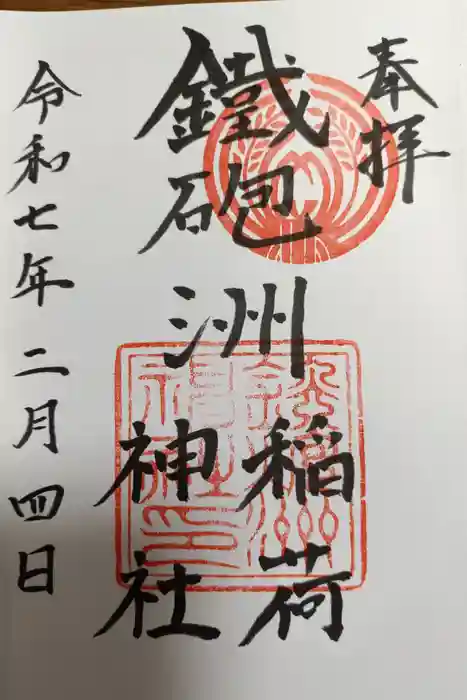 奉拝
鐵砲洲
稲荷
神社
令和七年二月四日